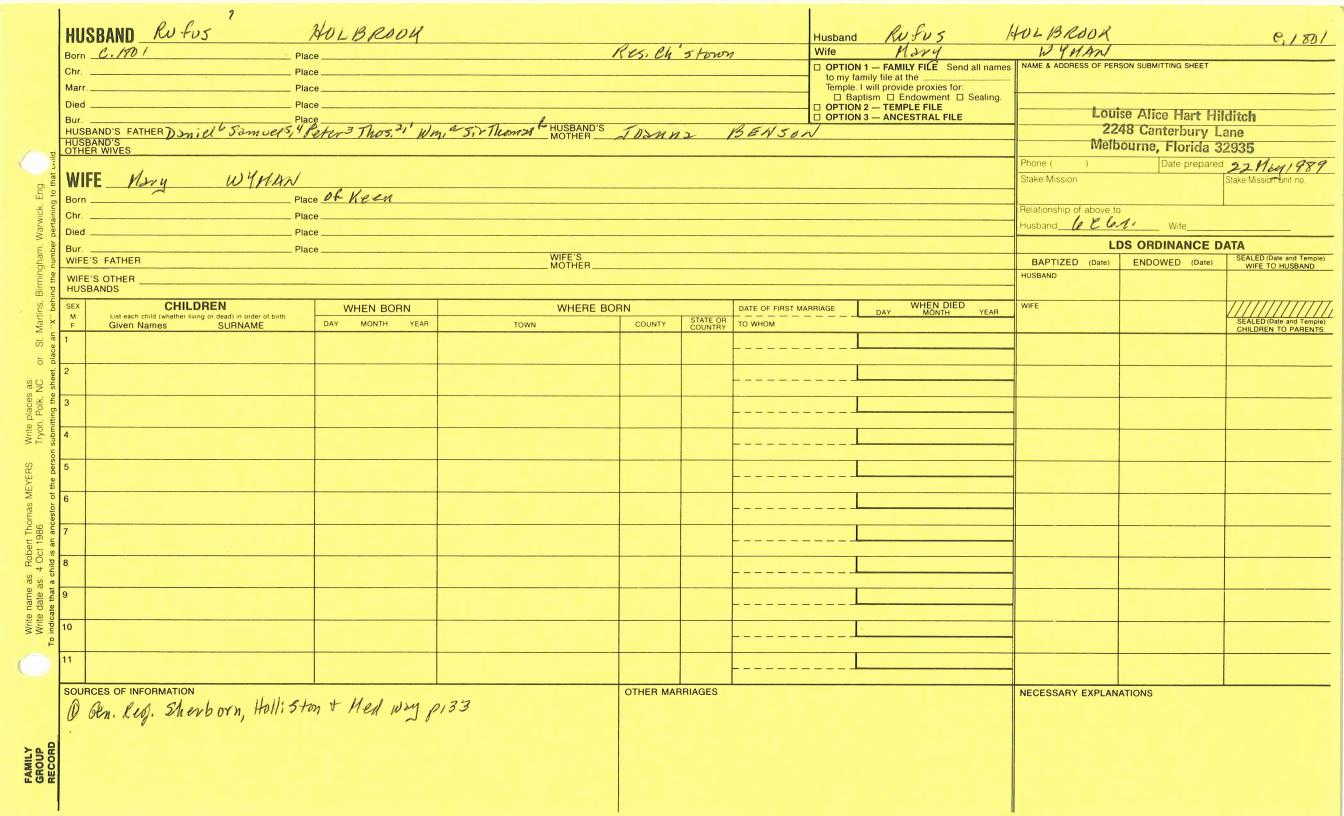 ?
HUSBAND Rufus HOLBROOK
Born c.1801 Place Res. Ch'stown
Chr. Place
Marr. Place
Died Place
Bur. Place
HUSBAND'S FATHER Daniel6 Samuel5,4 Peter3 Thos.2,1 Wm.a Sir Thomas HUSBAND'S MOTHER Joanna BENSON
HUSBAND'S OTHER WIVES
WIFE Mary WYMAN
Born Place of Keen
Chr. Place
Died Place
Bur. Place
WIFE'S FATHER WIFE'S MOTHER
WIFE'S OTHER HUSBANDS
Husband Rufus HOLBROOK c.1801
Wife Mary WYMAN
OPTION 1 — FAMILY FILE Send all names
to my family file at the
Temple. I will provide proxies for:
Baptism Endowment Sealing.
OPTION 2 — TEMPLE FILE
OPTION 3 — ANCESTRAL FILE
NAME & ADDRESS OF PERSON SUBMITTING SHEET
Louise Alice Hart Hilditch
2248 Canterbury Lane
Melbourne, Florida 32935
Phone ( ) Date prepared 22 May 1989
Stake Mission Stake Mission unit no.
Relationship of above to
Husband 6C6r. Wife
LDS ORDINANCE DATA
BAPTIZED (Date) ENDOWED (Date) SEALED (Date and Temple) WIFE TO HUSBAND
HUSBAND
WIFE
SEALED (Date and Temple) CHILDREN TO PARENTS
SEX M F
CHILDREN
List each child (whether living or dead) in order of birth
Given Names SURNAME
WHEN BORN
DAY MONTH YEAR
WHERE BORN
TOWN COUNTY STATE OR COUNTRY
DATE OF FIRST MARRIAGE
TO WHOM
WHEN DIED
DAY MONTH YEAR
1
2
3
4
5
6
7
8
9
10
11
SOURCES OF INFORMATION
① Gen. Reg. Sherborn, Holliston & Medway p133
OTHER MARRIAGES
NECESSARY EXPLANATIONS
Write name as: Robert Thomas MEYERS Write places as: Tryon, Polk, NC or St. Martins, Birmingham, Warwick, Eng.
Write date as: 4 Oct 1986
To indicate that a child is an ancestor of the person submitting the sheet, place an "X" behind the number pertaining to that child.
FAMILY
GROUP
RECORD